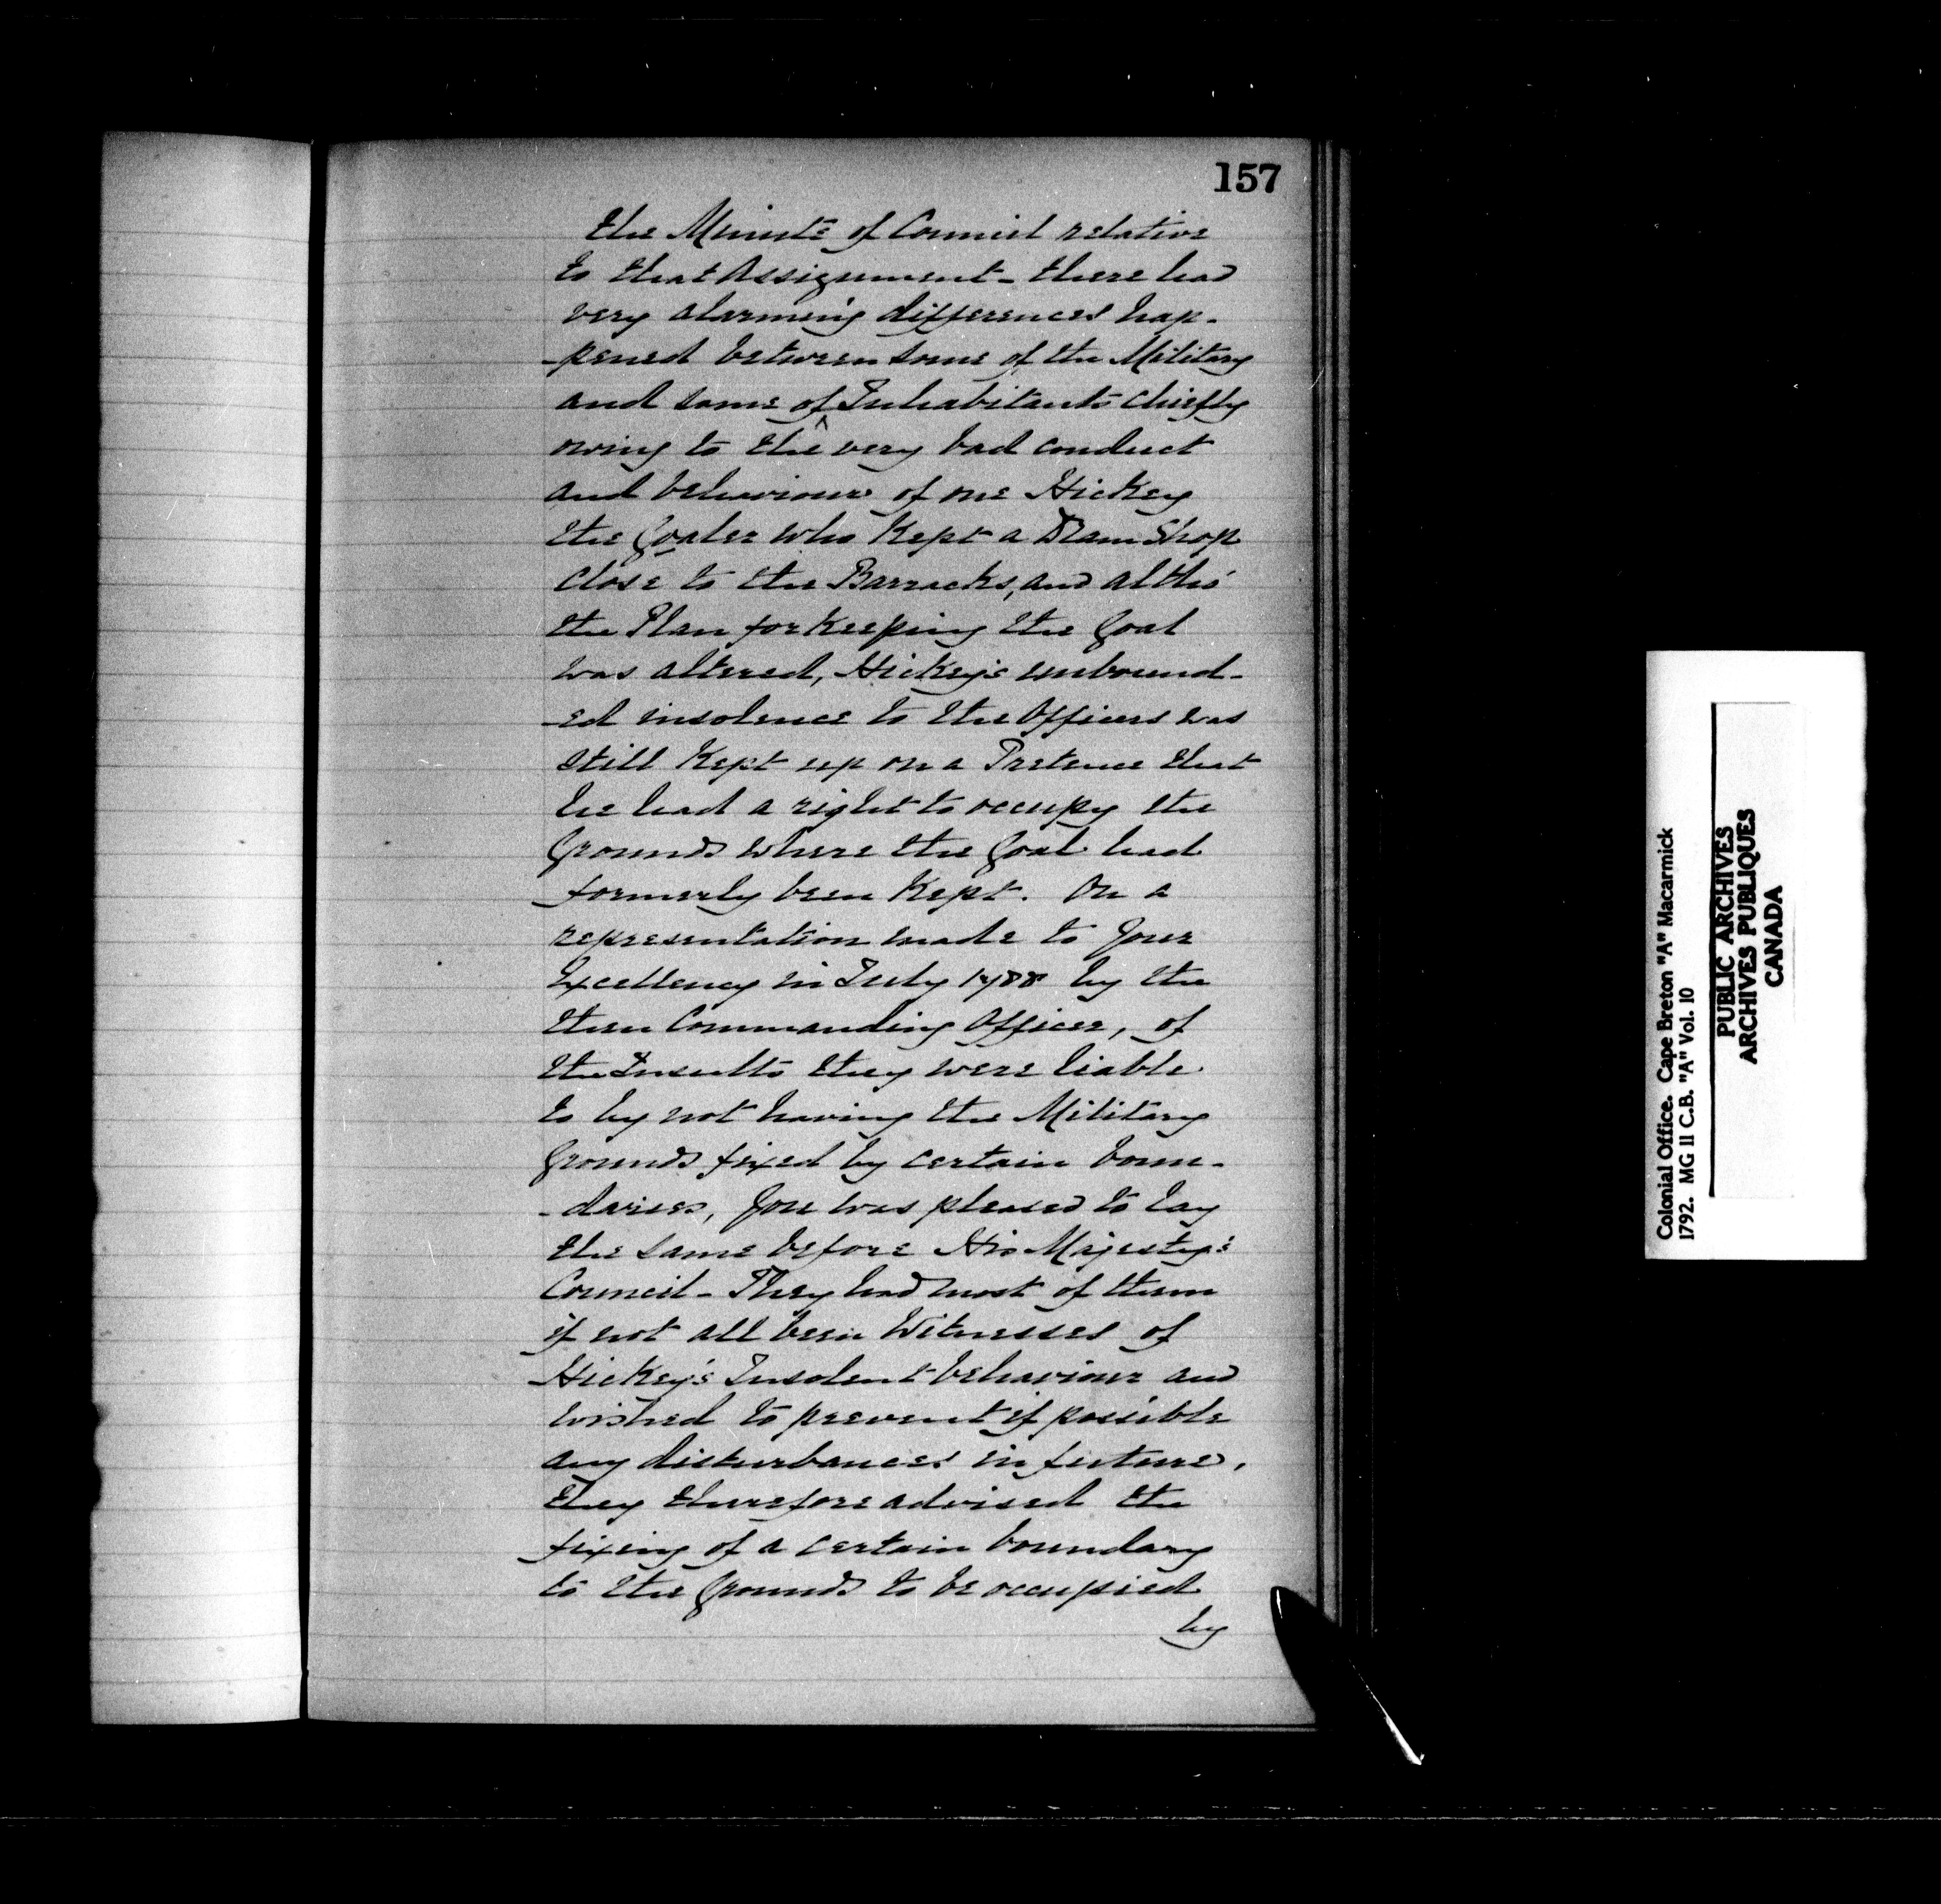 157
the Minute of Council relative
to that Assignment - there had
very alarming differences hap-
-pened between some of the Military
and some of Inhabitants chiefly
^
owing to the very bad conduct
and behaviour of one Hickey
the Goaler who Kept a Dram Shop
close to the Barracks, and altho'
the Plan for keeping the Goal
was altered, Hickey's unbound-
-ed insolence to the Officers was
still Kept up on a Pretence that
he had a right to occupy the
Grounds where the Goal had
formerly been Kept. On a
representation made to Your
Excellency in July 1788 by the
then Commanding Officer, of
the Insults they were liable
to by not having the Military
Grounds fixed by certain boun-
-daries, You was pleased to lay
the same before His Majesty's
Council - They had most of them
if not all been Witnesses of
Hickey's Insolent behaviour and
wished to prevent if possible
any disturbances in future,
they therefore advised the
fixing of a certain boundary
to the Grounds to be occupied
by
Colonial Office. Cape Breton "A" Macarmick
1792. MG 11 C.B. "A" Vol. 10
PUBLIC ARCHIVES
ARCHIVES PUBLIQUES
CANADA